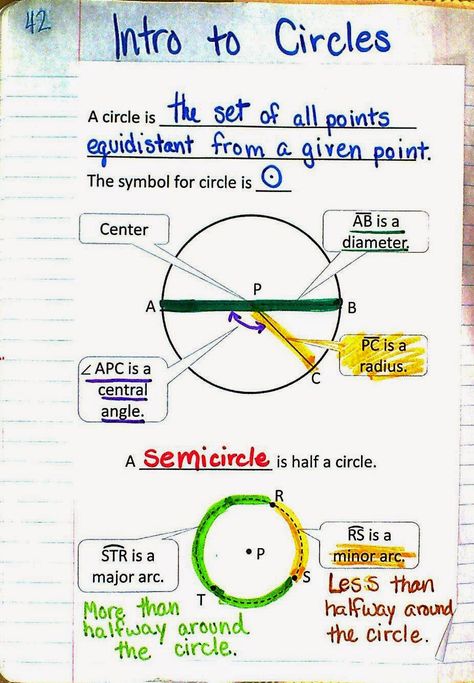 42
Intro to Circles
A circle is the set of all points
equidistant from a given point.
The symbol for circle is ⊙
Center
AB is a
diameter.
P
A
B
PC is a
radius.
C
∠ APC is a
central
angle.
A semicircle is half a circle.
R
RS is a
minor arc.
STR is a
major arc.
P
S
T
More than
halfway around
the circle.
Less than
halfway around
the circle.